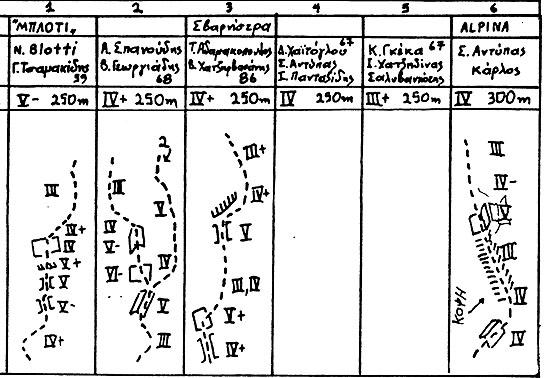 1 2 3 4 5 6
"ΜΠΛΟΤΙ" Σβαρνίστρα ALPINA
N. Blotti
Γ. Τσαμακίδης
59
Α. Σπανούδης
Β. Γεωργιάδης
68
Β. Χατζηβασάνης
86
Δ. Χαϊτογλου 67
Σ. Αντύπας
Σ. Πανταζίδης
Κ. Γκέκα 67
Σ. Χατζηδίνας
Σ. Αντύπας
Κάρλος
V- 250m IV+ 250m IV+ 250m IV 250m III+ 250m IV 300m
III
IV+
IV
V+
V
V-
IV+
2
III
V
IV
V-
VI-
IV
V
III
III+
IV+
V
III, IV
V+
IV+
III
IV-
IV
III
IV
ΚΟΨΗ
IV